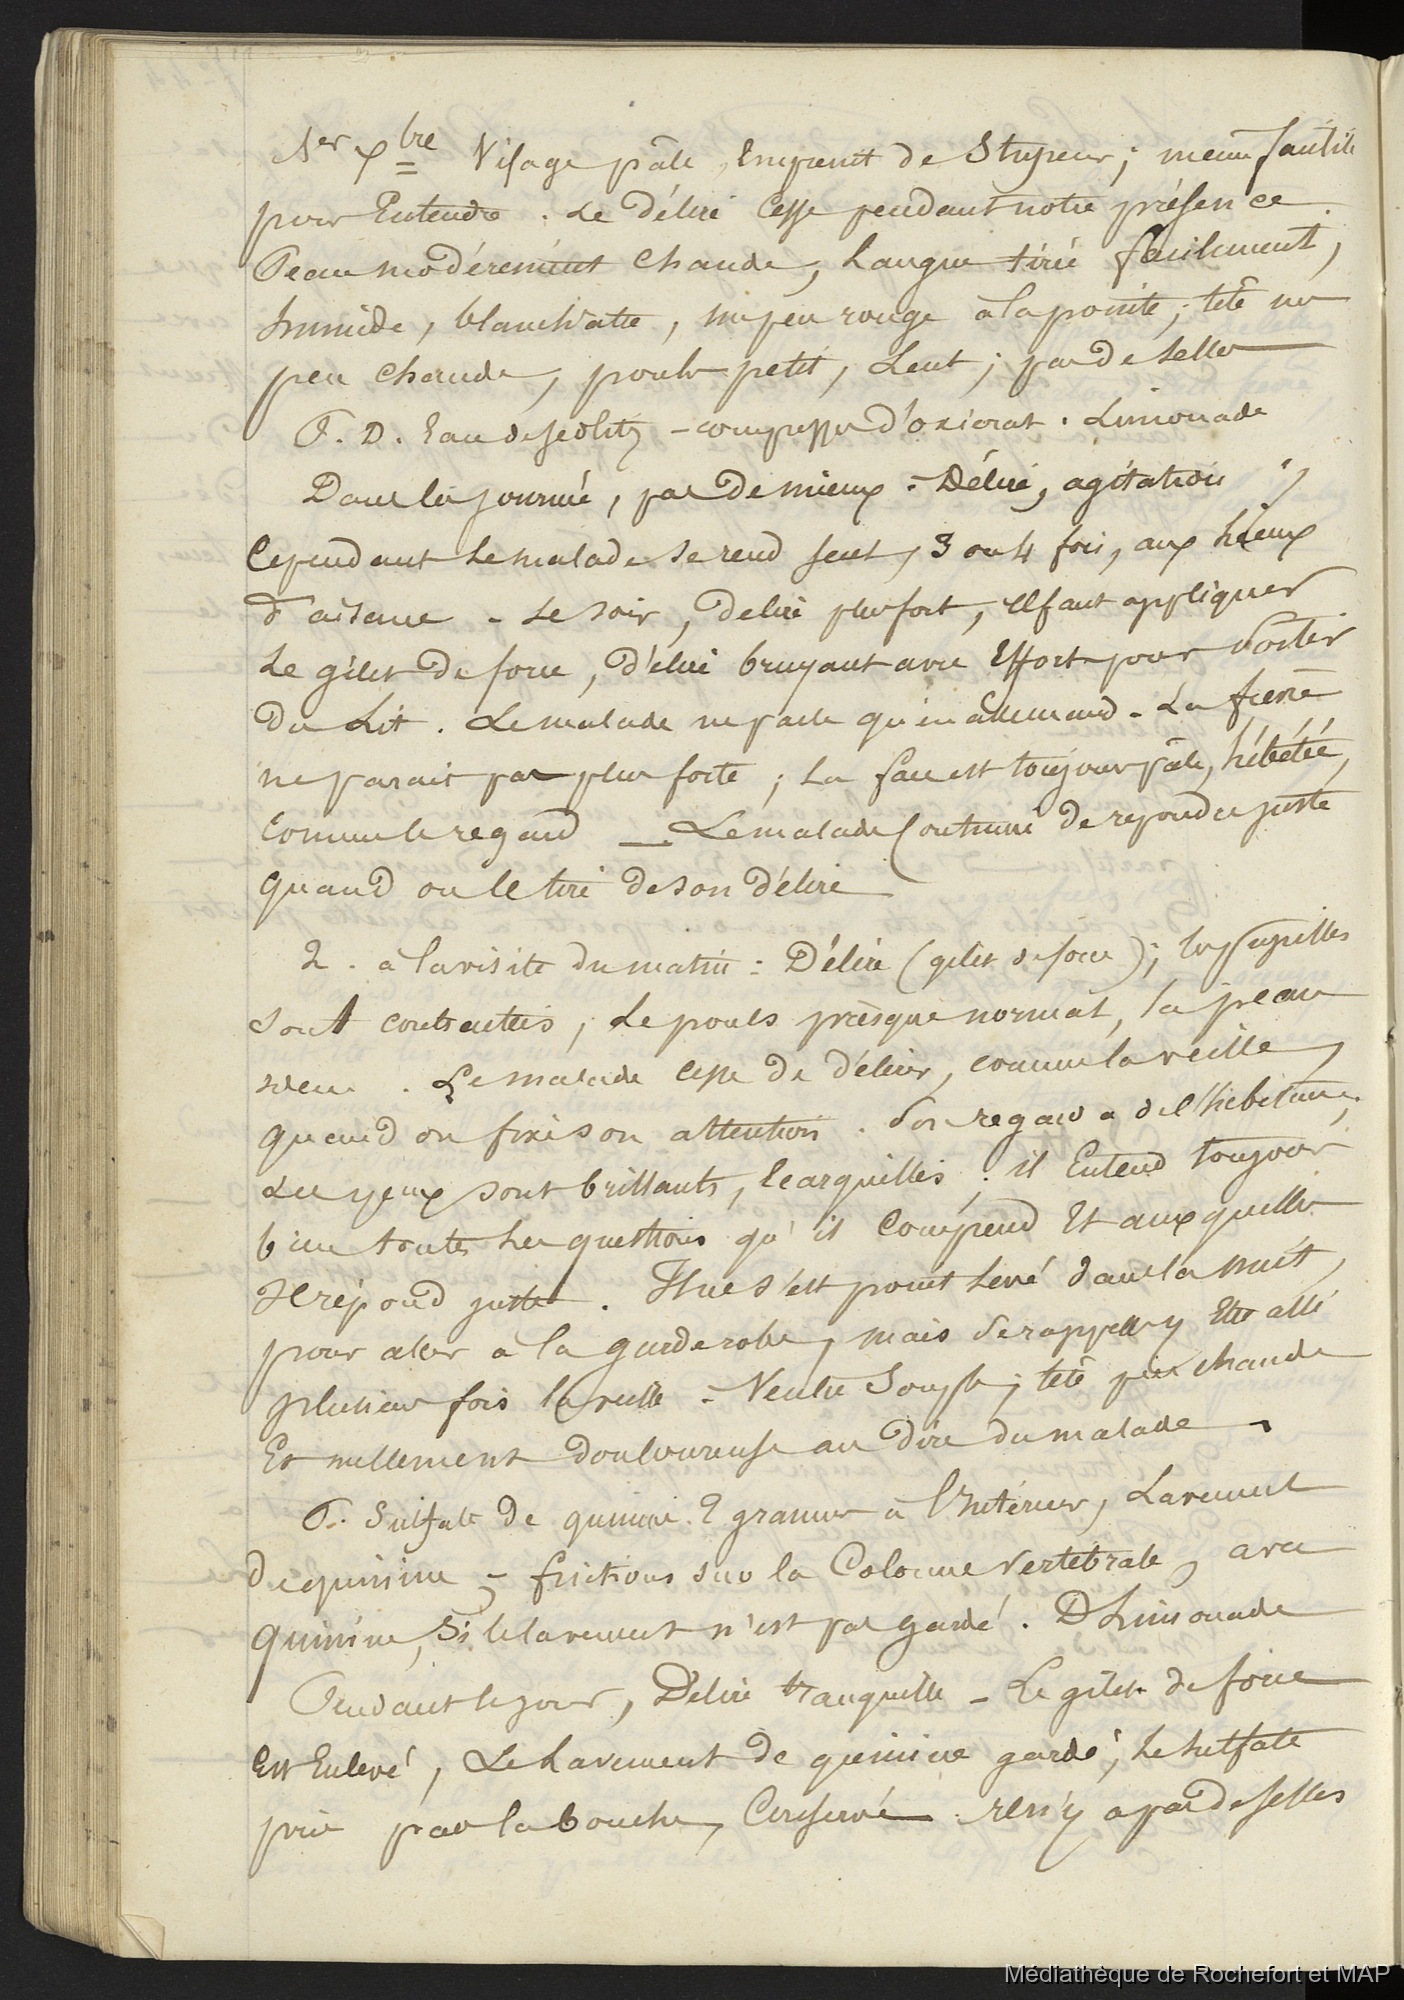 1er Xbre Visage pâle, Empreint de Stupeur; même facilité
pour Entendre. Le Délire Cesse pendant notre présence.
Peau modérément Chaude, Langue tirée facilement,
humide, blanchatre, un peu rouge à la pointe; tête un
peu Chaude, pouls petit, Lent; pas de selles
P. D. Eau de Sedlitz – compresses d'oxicrat. Limonade
Dans la journée, pas de mieux – Délire, agitation;
Cependant Le malade se rend seul, 3 ou 4 fois, aux lieux
d'aisance – Le soir, Delire plus fort, Il faut appliquer
Le gilet De force, Délire bruyant avec Effort pour Sortir
Du Lit. Le malade ne parle qu'en allemand – La fièvre
ne parait pas plus forte; La face est toujours pâle, hébétée,
Comme le regard — Le malade Continue De repondre juste
quand on le tire de son Délire
2. à la visite du matin: Délire (gilet de force); les pupilles
sont contractées, Le pouls presque normal, la peau
. Le malade cesse De Délirer, comme la veille,
quand on fixe son attention. Son regard a de l'hébétude;
Les yeux sont brillants, écarquillés; il Entend toujours
bien toutes Les questions qu'il Comprend Et aux quelles
Il répond juste. Il ne s'est point Levé dans la nuit,
pour aller à la garderobe, mais se rappelle y Etre allé
plusieurs fois la veille – Ventre Souple; tête peu chaude
Et nullement Douloureuse au dire du malade.
P. Sulfate De quinine. 2 grammes à l'Intérieur, Lavement
De quinine; – frictions sur la Colonne Vertébrale, avec
quinine, Si le lavement n'est pas gardé. D Limonade
Pendant le jour, Délire tranquille – Le gilet De force
Est Enlevé, Le Lavement De quinine gardé, Le sulfate
pris par la bouche, Conservé. Il n'y a pas De selles
Médiathèque de Rochefort et MAP